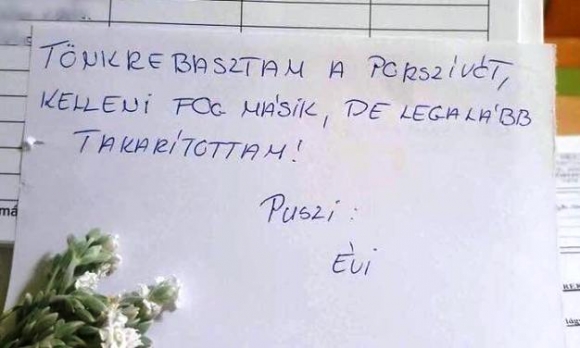 TÖNKREBASZTAM A PORSZÍVÓT,
KELLENI FOG MÁSIK, DE LEGALÁBB
TAKARÍTOTTAM!
PUSZI:
ÉVI